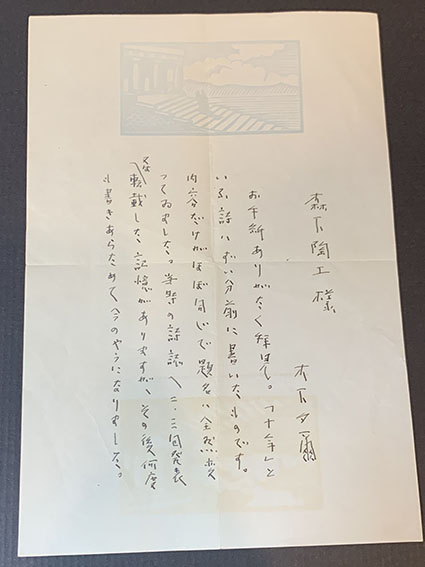 森下陶工様
木下夕爾
お手紙ありがたく拝見。「十年」と
いふ詩はずい分前に書いたものです。
内容だけがほぼ同じで題名は全然
つてゐました。学祭の詩誌へ二、三回発表
又は転載した記憶がありますが、その後何度
も書きあらためて今のやうになりました。